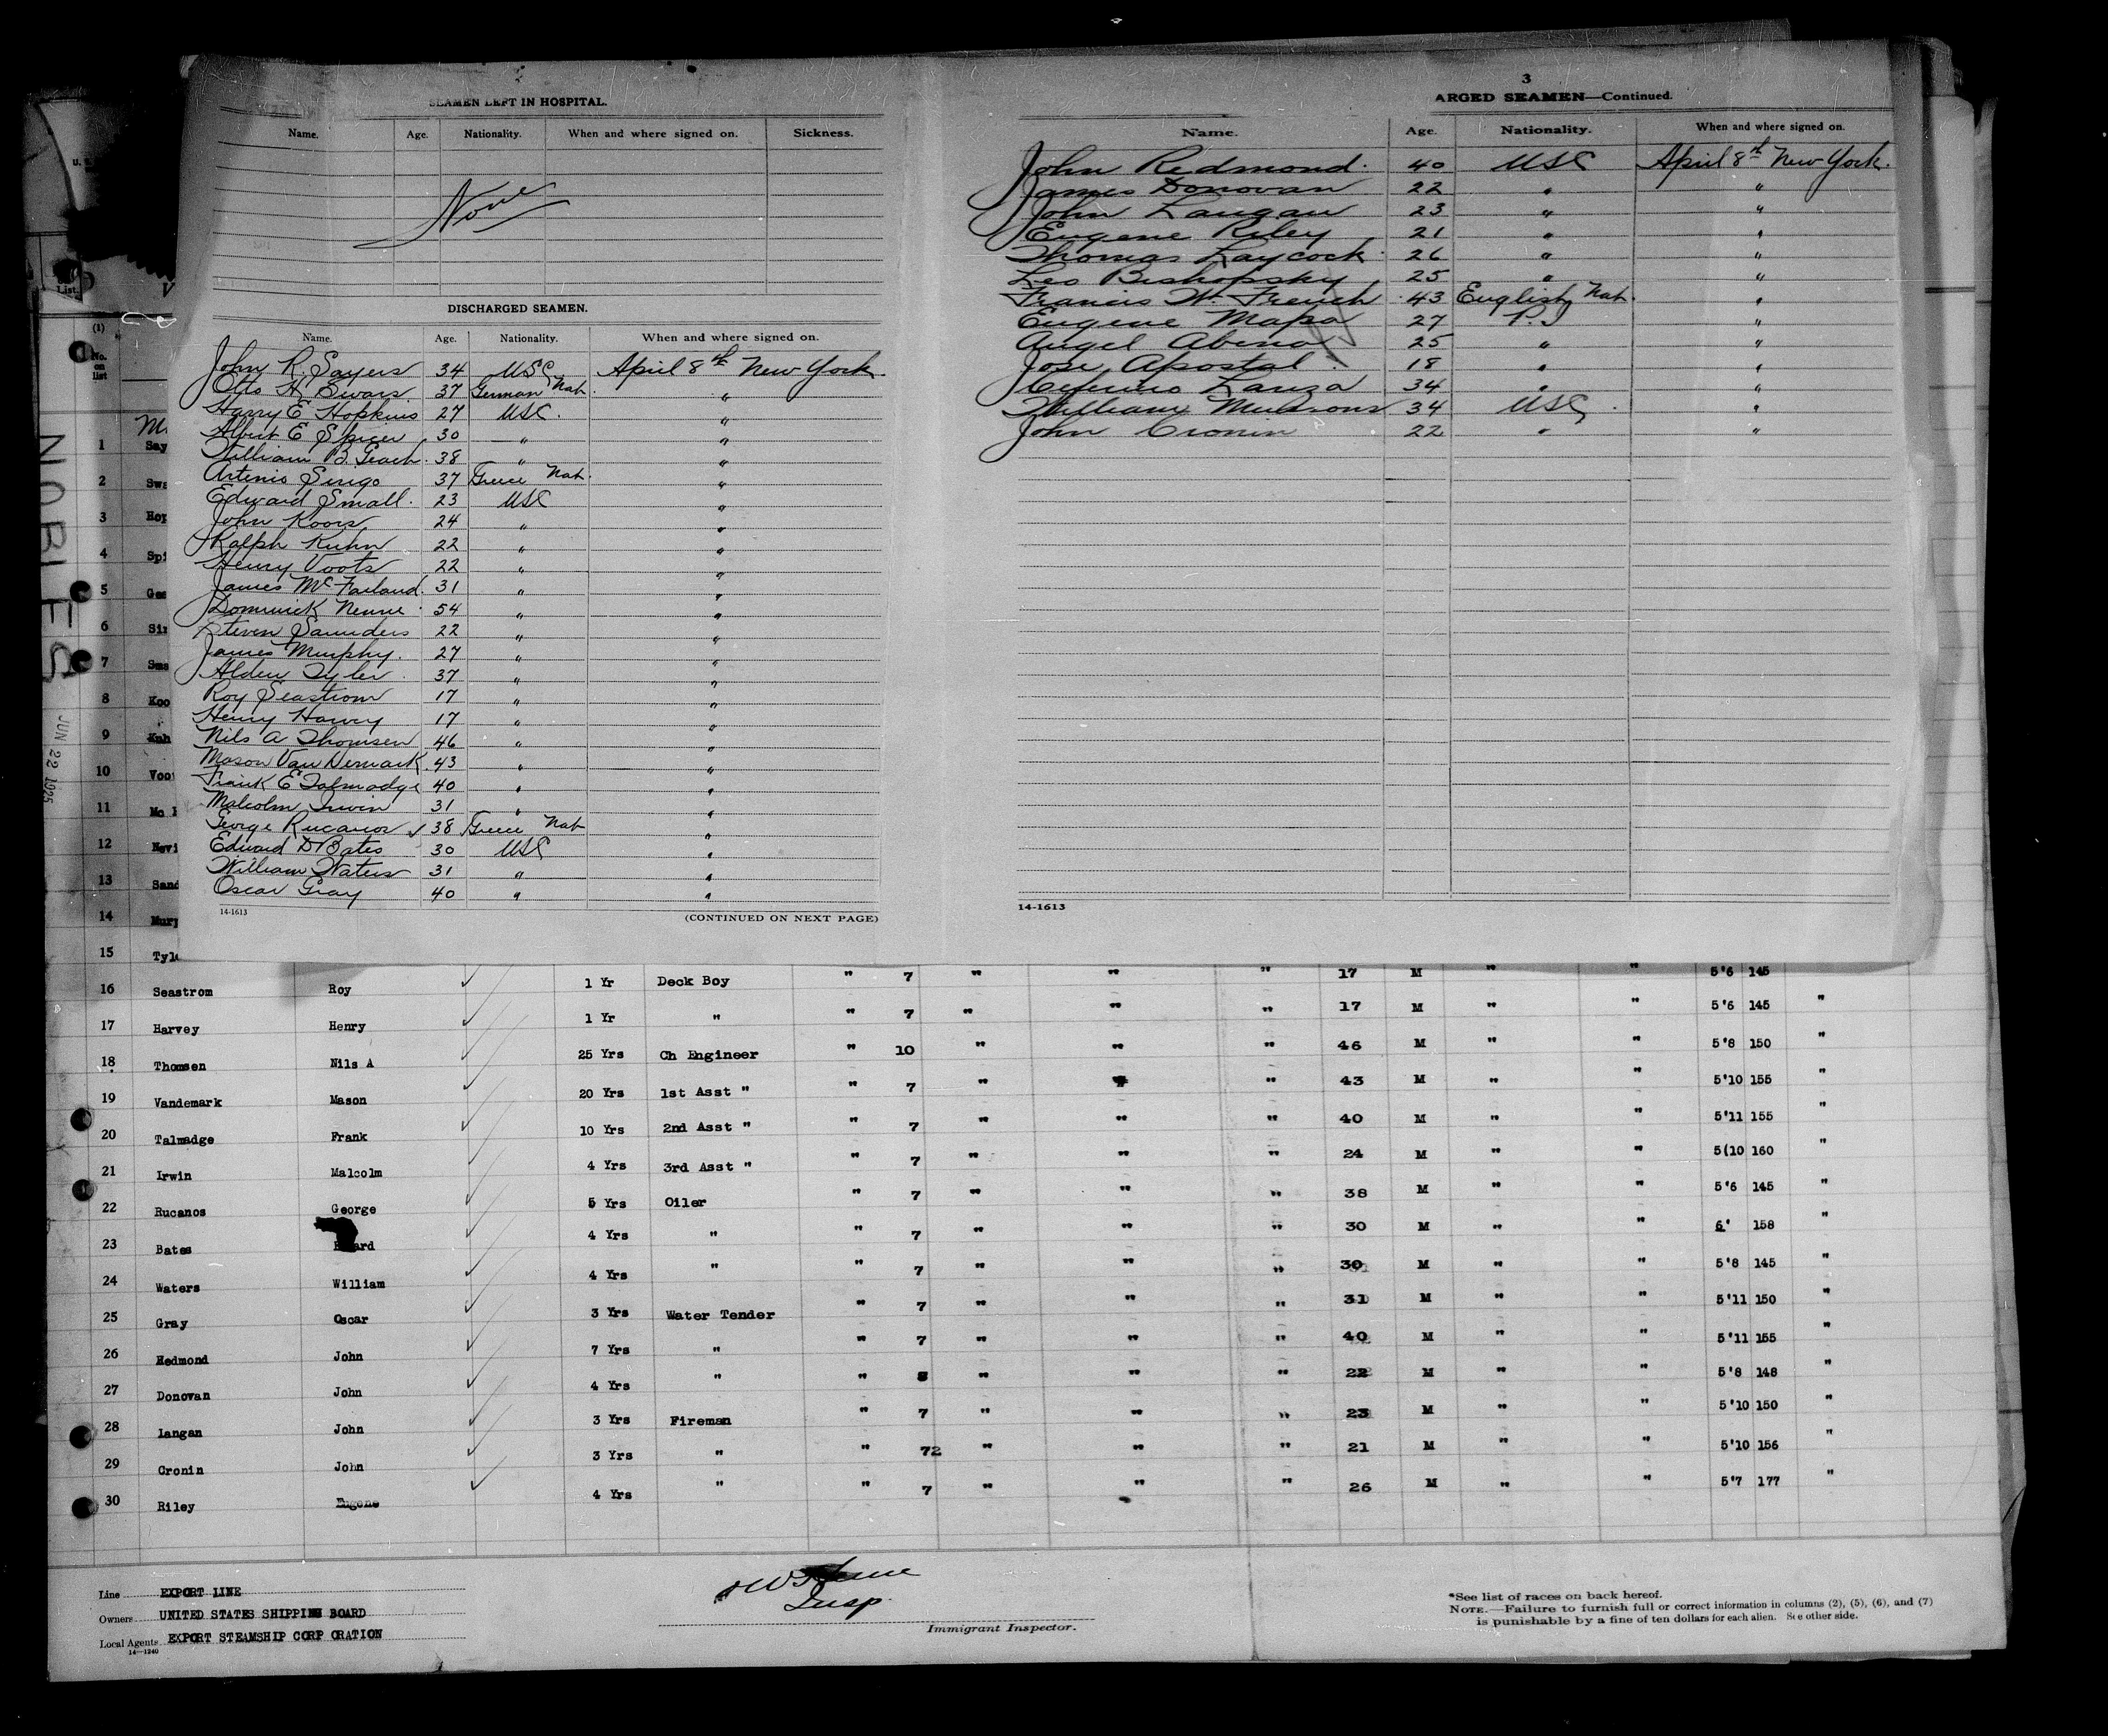 SEAMEN LEFT IN HOSPITAL.
Name. Age. Nationality. When and where signed on. Sickness.
None
DISCHARGED SEAMEN.
Name. Age. Nationality. When and where signed on.
John R. Sayers 34 USC April 8th New York
Otto H. Swars 37 German Nat. "
Harry E Hopkins 27 USC. "
Albert E Spicer 30 " "
William B. Geach 38 " "
Artenis Sirigo 37 Greece Nat. "
Edward Small. 23 USC "
John Koors 24 " "
Ralph Kuhn 22 " "
Henry Voots 22 " "
James McFarland. 31 " "
Dominick 54 " "
Steven Saunders 22 " "
James Murphy. 27 " "
Alden Tyler 37 " "
Roy Seastrom 17 " "
Henry Harvey 17 " "
Nils A Thomsen 46 " "
Mason Van Demark. 43 " "
Frank E Talmadge 40 " "
Malcolm Irwin 31 " "
George Rucanos 38 Greece Nat "
Edward D Bates 30 USC "
William Waters 31 " "
Oscar Gray 40 " "
14-1613
(CONTINUED ON NEXT PAGE)
3
ARGED SEAMEN—Continued.
Name. Age. Nationality. When and where signed on.
John Redmond. 40 USC April 8th New York.
James Donovan 22 " "
John Langan 23 " "
Eugene Riley 21 " "
Thomas Laycock 26 " "
Leo Bishopsky 25 " "
Francis W. French 43 English Nat. "
Eugene Mapa 27 P.I "
Angel Abena 25 " "
Jose Apostal 18 " "
Ceferino Lanza 34 " "
William 34 USC "
John Cronin 22 " "
14-1613
(1)
No. on list
NOBLES
JUN 22 1925
1 Say
2 Swa
3 Hop
4 Spi
5 Gea
6 Sir
7 Sma
8 Koo
9 Kuh
10 Voo
11 Mc
12 Nevi
13 Sand
14 Murp
15 Tyle
16 Seastrom Roy 1 Yr Deck Boy " 7 " " " 17 M " " 5'6 145
17 Harvey Henry 1 Yr " " 7 " " " 17 M " " 5'6 145 "
18 Thomsen Nils A 25 Yrs Ch Engineer " 10 " " " 46 M " " 5'8 150 "
19 Vandemark Mason 20 Yrs 1st Asst " " 7 " " " 43 M " " 5'10 155 "
20 Talmadge Frank 10 Yrs 2nd Asst " " 7 " " " 40 M " " 5'11 155 "
21 Irwin Malcolm 4 Yrs 3rd Asst " " 7 " " " 24 M " " 5(10 160 "
22 Rucanos George 5 Yrs Oiler " 7 " " " 38 M " " 5'6 145 "
23 Bates ard 4 Yrs " " 7 " " " 30 M " " 6' 158 "
24 Waters William 4 Yrs " " 7 " " " 30 M " " 5'8 145 "
25 Gray Oscar 3 Yrs Water Tender " 7 " " " 31 M " " 5'11 150 "
26 Redmond John 7 Yrs " " 7 " " " 40 M " " 5'11 155 "
27 Donovan John 4 Yrs " " 8 " " " 22 M " " 5'8 148 "
28 Langan John 3 Yrs Fireman " 7 " " " 23 M " " 5'10 150 "
29 Cronin John 3 Yrs " " 72 " " " 21 M " " 5'10 156 "
30 Riley Eugene 4 Yrs " " 7 " " " 26 M " " 5'7 177 "
Line EXPORT LINE
Owners UNITED STATES SHIPPING BOARD
Local Agents EXPORT STEAMSHIP CORP ORATION
14-1240
Insp.
Immigrant Inspector.
*See list of races on back hereof.
NOTE.—Failure to furnish full or correct information in columns (2), (5), (6), and (7)
is punishable by a fine of ten dollars for each alien. See other side.